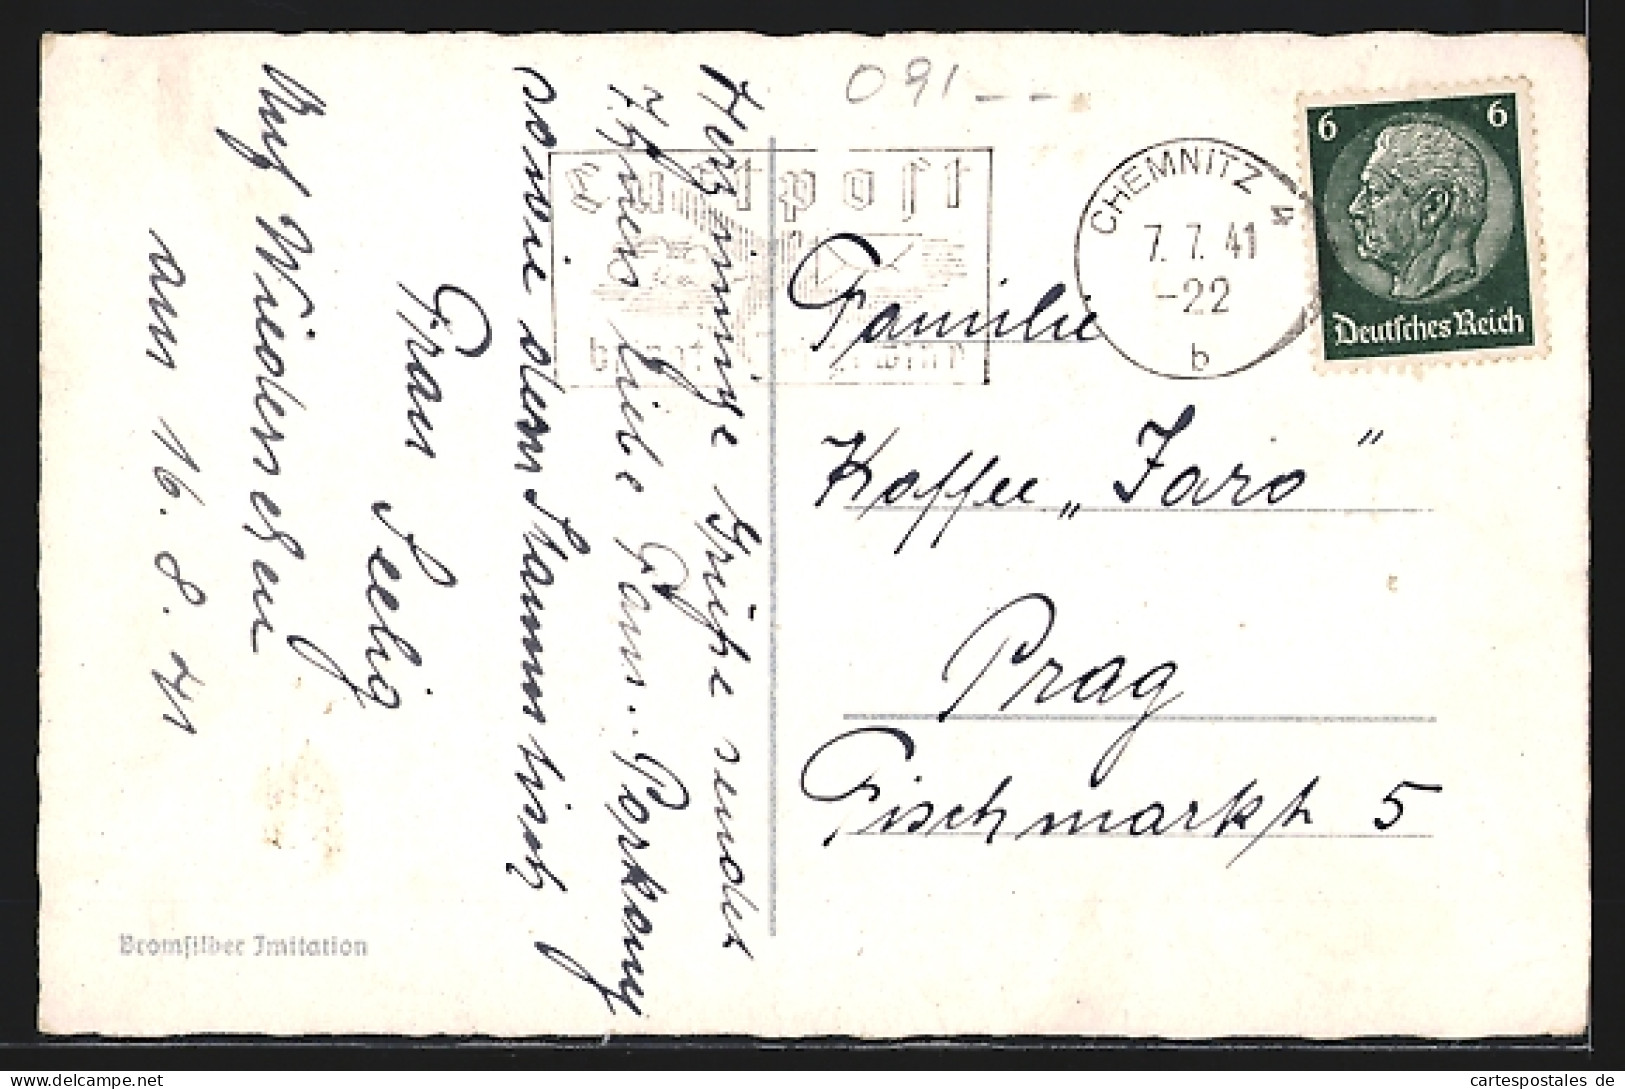 091--
Luftpost
CHEMNITZ
7.7.41
-22
b
6 6
Deutsches Reich
Familie
Kaffee „Jaro"
Prag
Fischmarkt 5
Herzinnige Grüße sendet
Ihnen liebe Fam. Porkony
sowie dem Stammtisch
Frau Seelig
Auf Wiedersehen
am 16. 8. 41
Bromsilber Imitation
cartespostales de